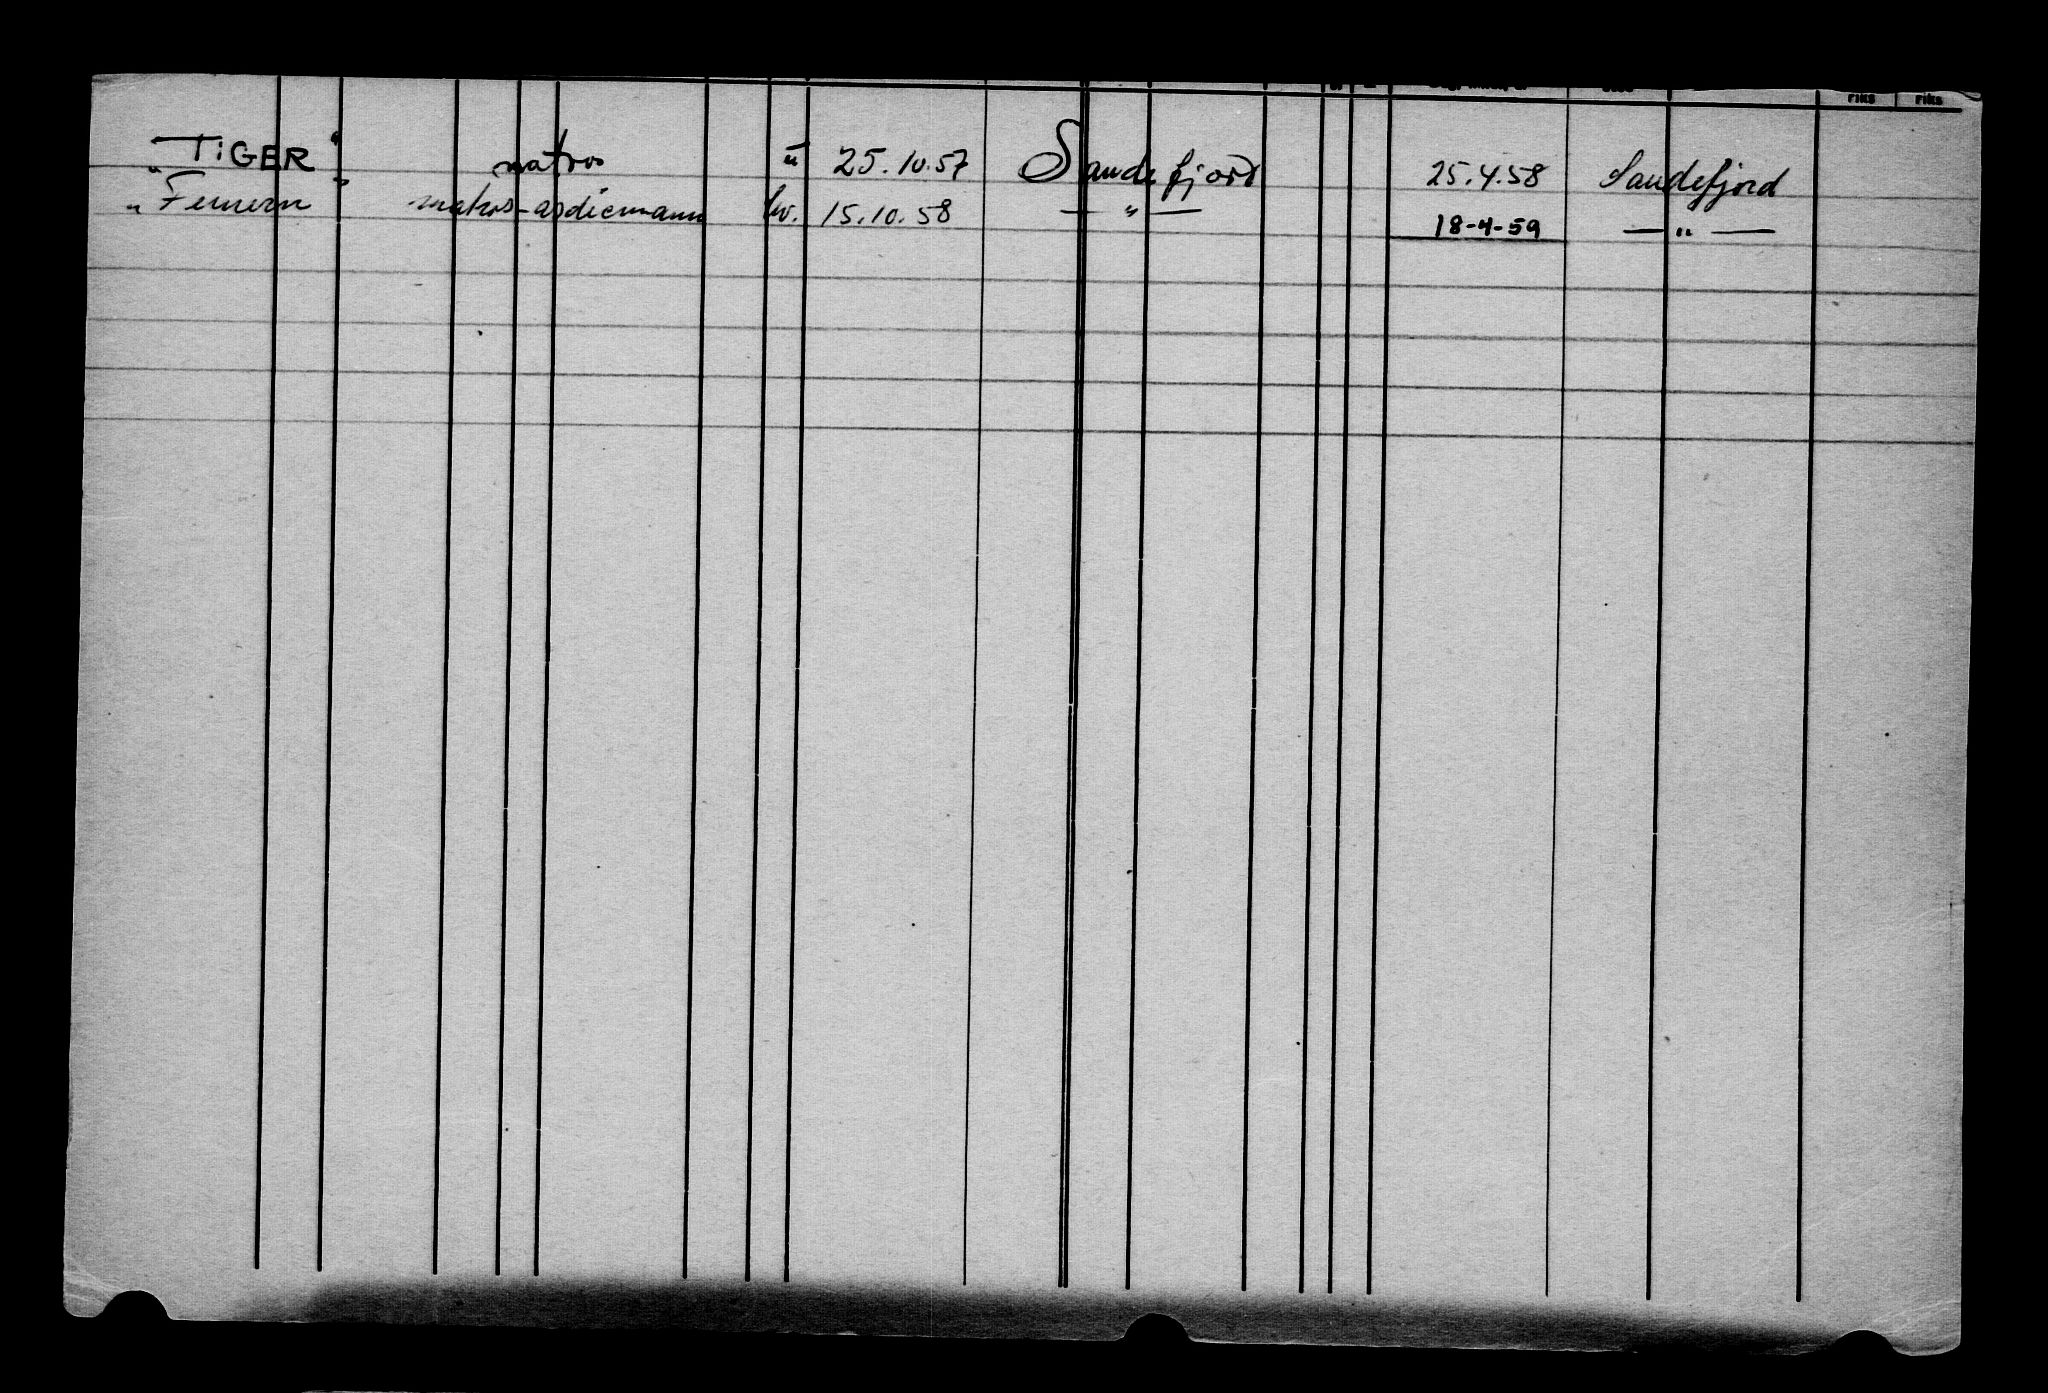 riks riks
"TiGER" matros u 25.10.57 Sandefjord 25.4.58 Sandefjord
"Femern" matros-asdicmann hv. 15.10.58 — " — 18-4-59 — " —